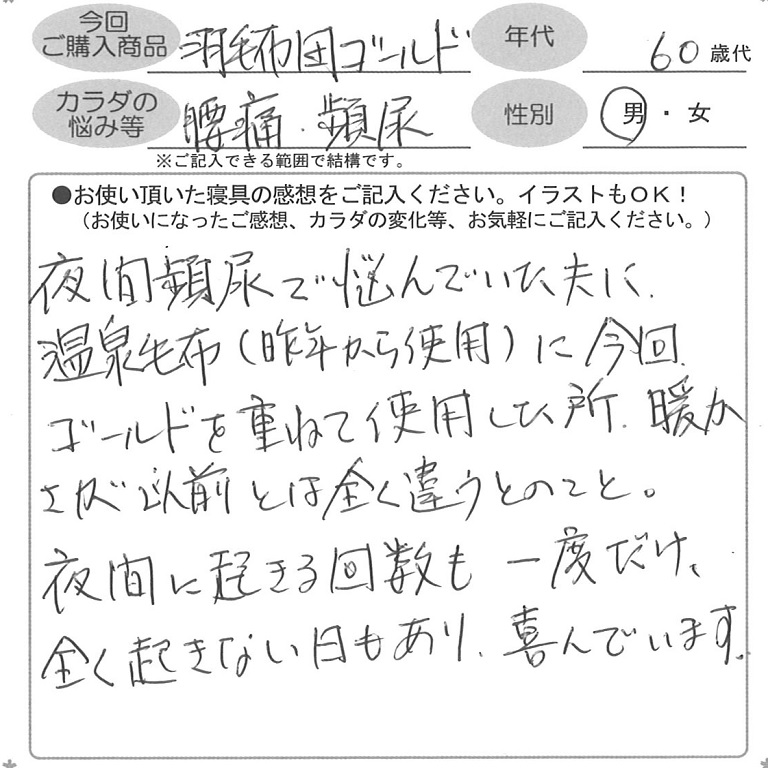 今回
ご購入商品 羽毛布団ゴールド 年代 60歳代
カラダの
悩み等 腰痛・頻尿 性別 男・女
※ご記入できる範囲で結構です。
●お使い頂いた寝具の感想をご記入ください。イラストもOK！
（お使いになったご感想、カラダの変化等、お気軽にご記入ください。）
夜間頻尿で悩んでいた夫に、
温泉毛布（昨年から使用）に今回、
ゴールドを重ねて使用した所、暖か
さが以前とは全く違うとのこと。
夜間に起きる回数も一度だけ、
全く起きない日もあり、喜んでいます。